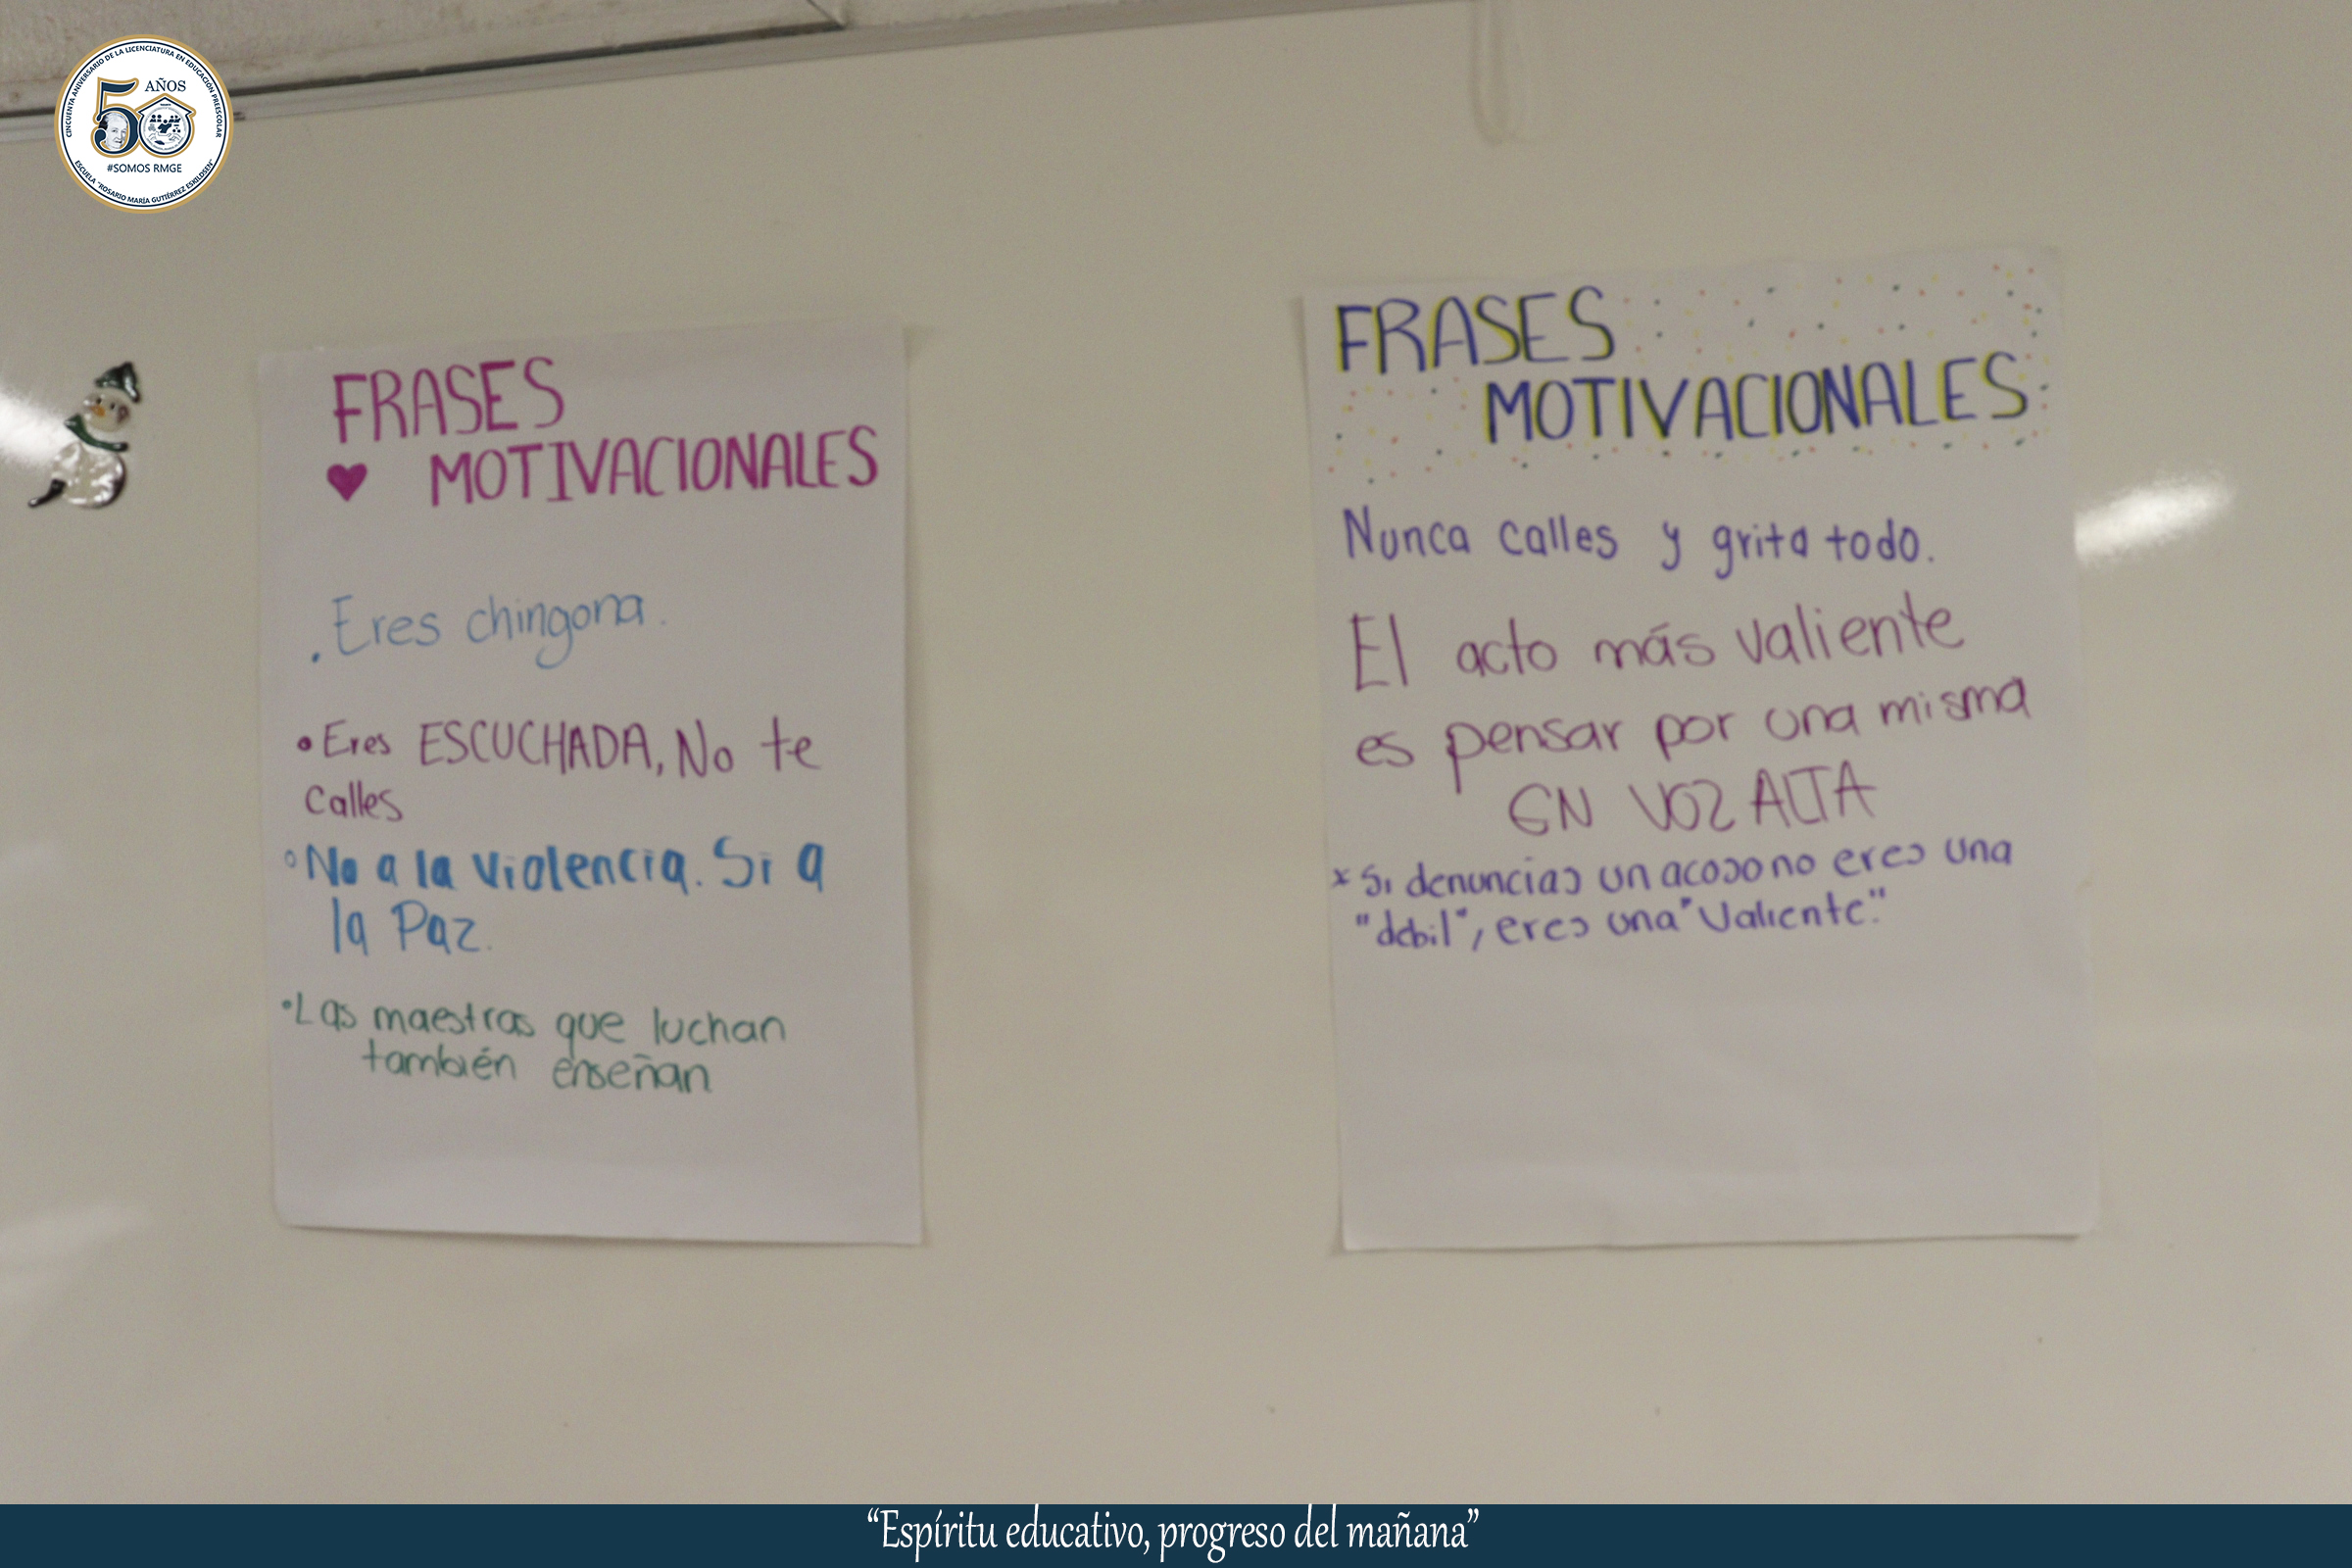 CINCUENTA ANIVERSARIO DE LA LICENCIATURA EN EDUCACIÓN PREESCOLAR
50 AÑOS
#SOMOS RMGE
ESCUELA "ROSARIO MARÍA GUTIÉRREZ ESKILDSEN"
FRASES
MOTIVACIONALES
. Eres chingona.
• Eres ESCUCHADA, No te
calles
° No a la violencia. Si a
la Paz.
• Las maestras que luchan
también enseñan
FRASES
MOTIVACIONALES
Nunca calles y grita todo.
El acto más valiente
es pensar por una misma
EN VOZ ALTA
x Si denuncias un acoso no eres una
"debil", eres una "Valiente".
“Espíritu educativo, progreso del mañana”